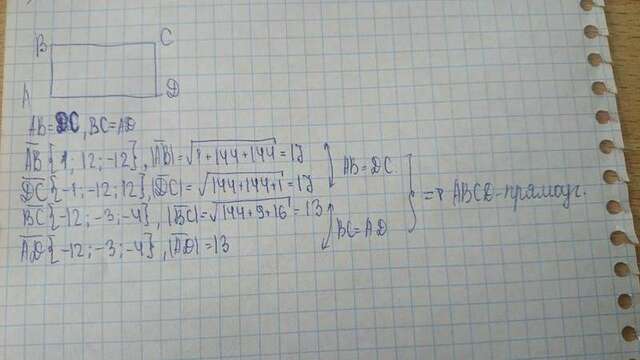 B C
A D
AB=DC, BC=AD
AB{1; 12; -12}, |AB|=√1+144+144=17
DC{-1; -12; 12}, |DC|=√144+144+1=17
AB=DC
BC{-12; -3; -4}, |BC|=√144+9+16=13
AD{-12; -3; -4}, |AD|=13
BC=AD
=> ABCD-прямоуг.